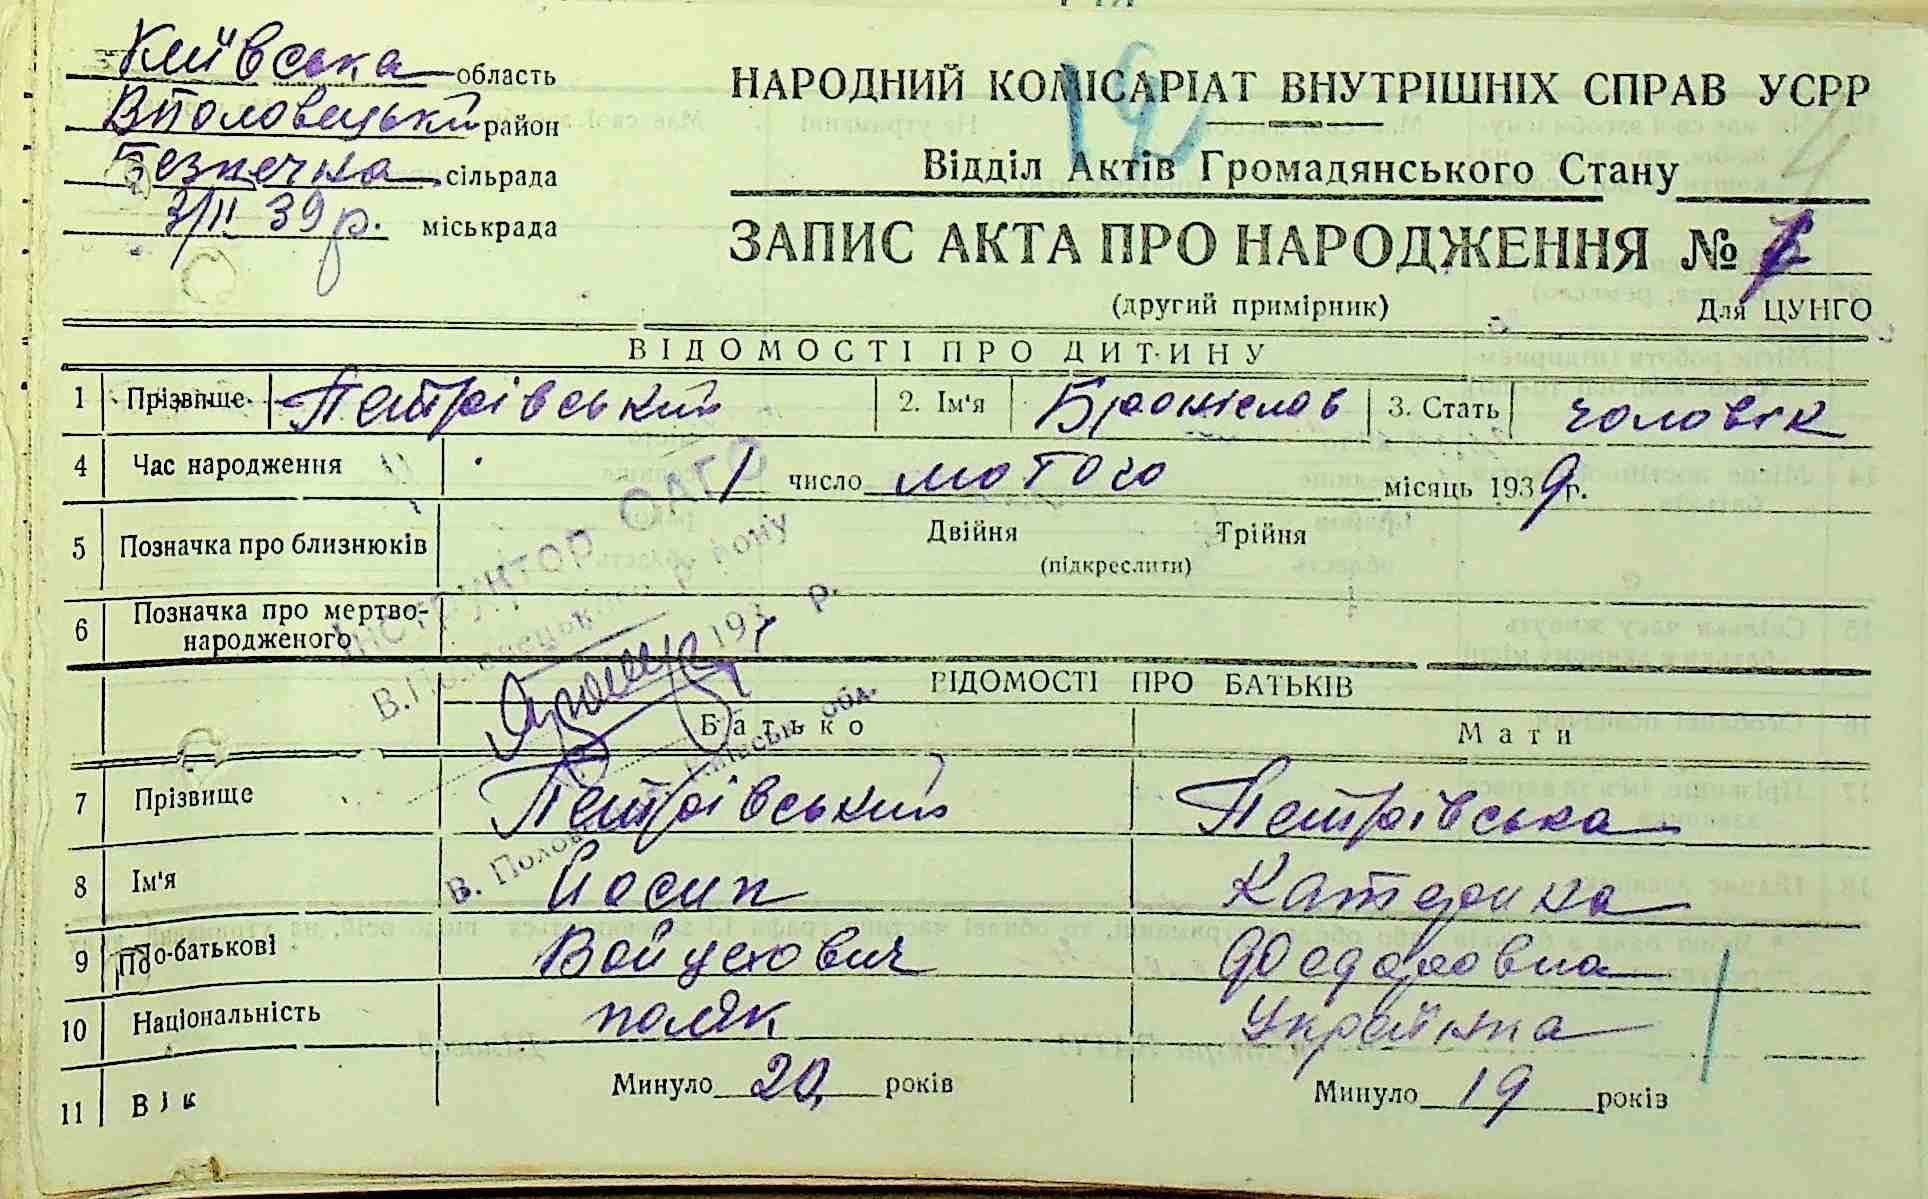 Київська область
Вполовецький район
Безпечна сільрада
3/II 39 р. міськрада
НАРОДНИЙ КОМІСАРІАТ ВНУТРІШНІХ СПРАВ УСРР
Відділ Актів Громадянського Стану
ЗАПИС АКТА ПРО НАРОДЖЕННЯ №
(другий примірник) Для ЦУНГО
ВІДОМОСТІ ПРО ДИТИНУ
1 Прізвище Петрівський 2. Ім'я Броніслав 3. Стать чоловік
4 Час народження 1 число лютого місяць 1939 г.
5 Позначка про близнюків Двійня Трійня
(підкреслити)
6 Позначка про мертво-
народженого
Інструктор ОАГС
В.Половецького р-ону
193 р.
В. Полов Київськ. обл.
ВІДОМОСТІ ПРО БАТЬКІВ
Батько Мати
7 Прізвище Петрівський Петрівська
8 Ім'я Йосип Катерина
9 По-батькові Войцехович Федоровна
10 Національність поляк Українка
11 Вік Минуло 20 років Минуло 19 років